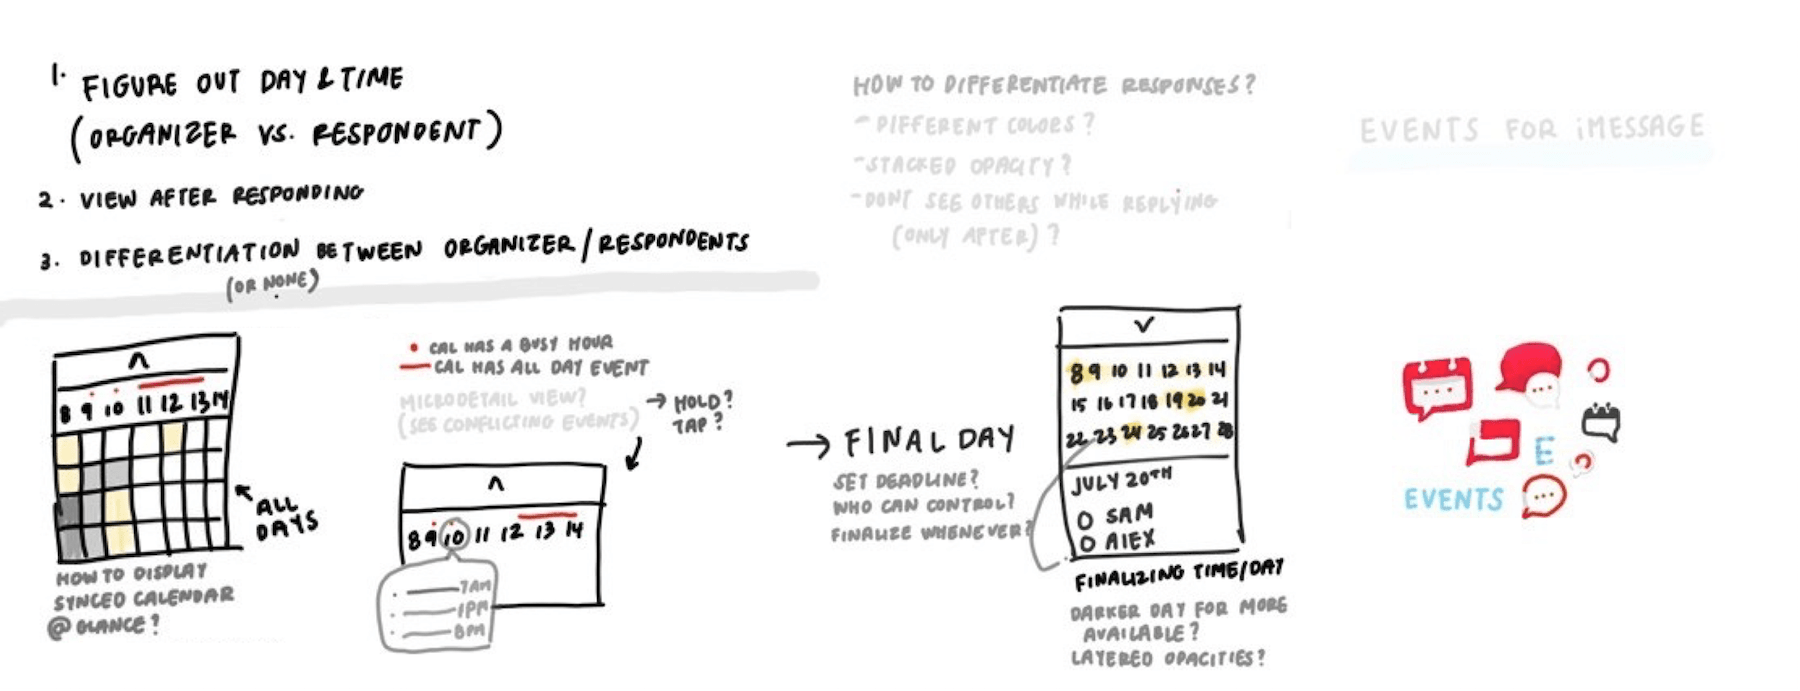 1. FIGURE OUT DAY & TIME
(ORGANIZER VS. RESPONDENT)
2. VIEW AFTER RESPONDING
3. DIFFERENTIATION BETWEEN ORGANIZER/RESPONDENTS
(OR NONE)
HOW TO DIFFERENTIATE RESPONSES?
- DIFFERENT COLORS?
- STACKED OPACITY?
- DONT SEE OTHERS WHILE REPLYING
(ONLY AFTER)?
EVENTS FOR iMESSAGE
8 9 10 11 12 13 14
ALL
DAYS
HOW TO DISPLAY
SYNCED CALENDAR
@ GLANCE?
CAL HAS A BUSY HOUR
CAL HAS ALL DAY EVENT
MICRODETAIL VIEW?
(SEE CONFLICTING EVENTS)
→ HOLD?
TAP?
8 9 10 11 12 13 14
7AM
1PM
8PM
→ FINAL DAY
SET DEADLINE?
WHO CAN CONTROL?
FINALIZE WHENEVER?
8 9 10 11 12 13 14
15 16 17 18 19 20 21
22 23 24 25 26 27 28
JULY 20TH
O SAM
O AlEX
FINALIZING TIME/DAY
DARKER DAY FOR MORE
AVAILABLE?
LAYERED OPACITIES?
E
EVENTS